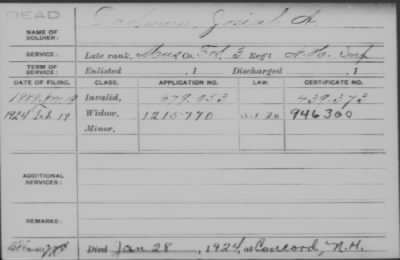 DEAD
NAME OF SOLDIER: Josiah A.
SERVICE: Late rank, Mus Co. 3 Reg't N.H. Inf
TERM OF SERVICE: Enlisted , 1 Discharged , 1
DATE OF FILING. CLASS. APPLICATION NO. LAW. CERTIFICATE NO.
Invalid, 679.053 439.373
1924 Feb 19 Widow, 1215770 946300
Minor,
ADDITIONAL SERVICES:
REMARKS:
Died Jan 28, 1924, at Concord, N.H.